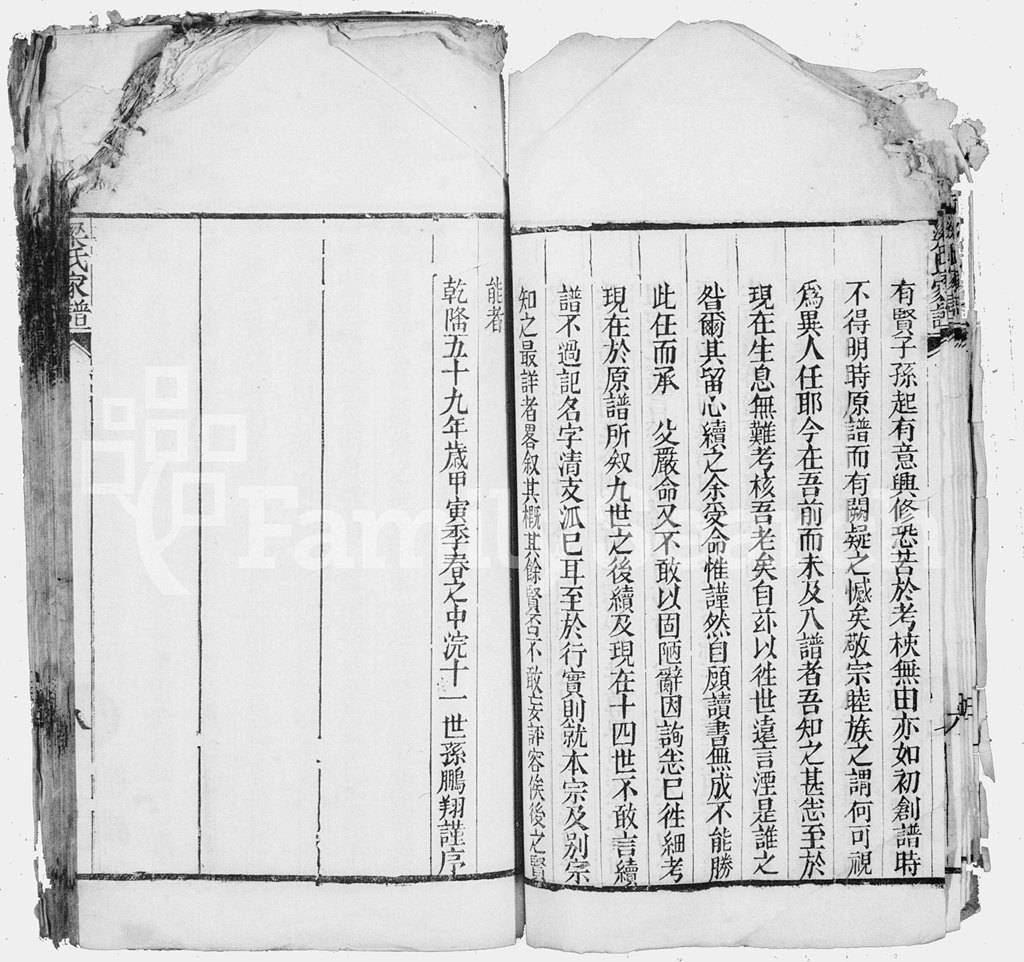 有賢子孫起有意興修恐苦於考核無由亦如初創譜時
不得明時原譜而有闕疑之憾矣敬宗睦族之謂何可視
爲異人任耶今在吾前而未及入譜者吾知之甚悉至於
現在生息無難考核吾老矣自玆以徃世遠言湮是誰之
咎爾其留心續之余受命惟謹然自顧讀書無成不能勝
此任而承 父嚴命又不敢以固陋辭因詢悉已徃細考
現在於原譜所叙九世之後續及現在十四世不敢言續
譜不過記名字清支派已耳至於行實則就本宗及別宗
知之最詳者畧叙其槪其餘賢否不敢妄評容俟後之賢
能者
乾隆五十九年歲甲寅季春之中浣十一世孫鵬翔謹序
氏家譜
八
FamilySearch